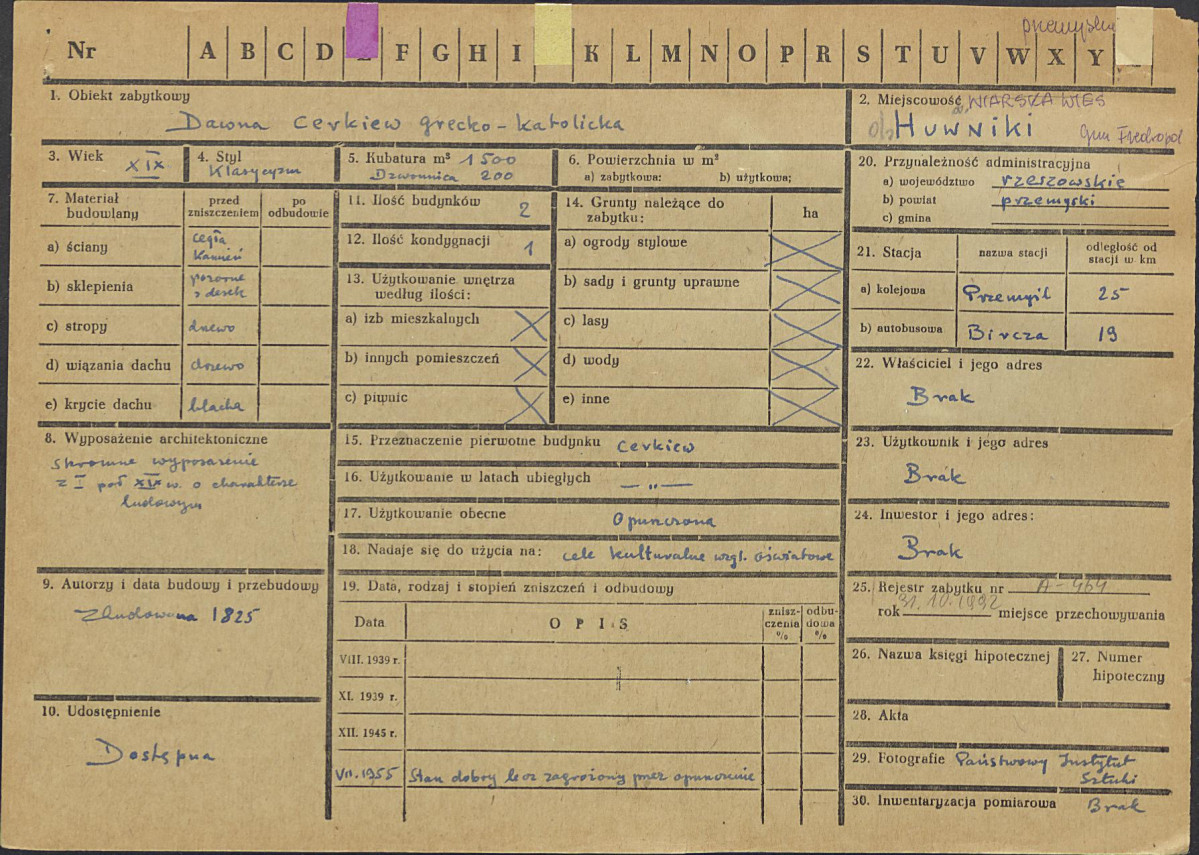 przemyskie
Nr A B C D F G H I K L M N O P R S T U V W X Y
1. Obiekt zabytkowy
Dawna Cerkiew grecko-katolicka
2. Miejscowość WIARSKA WIEŚ
ob. Huwniki
gm Fredropol
3. Wiek XIX
4. Styl
Klasycyzm
5. Kubatura m³ 1500
Dzwonnica 200
6. Powierzchnia w m²
a) zabytkowa: b) użytkowa:
7. Materiał budowlany
przed zniszczeniem
po odbudowie
a) ściany cegła kamień
b) sklepienia pozorne z desek
c) stropy drewo
d) wiązania dachu drzewo
e) krycie dachu blacha
8. Wyposażenie architektoniczne
skromne wyposażenie
z I poł XIX w. o charakterze
ludowym
9. Autorzy i data budowy i przebudowy
Zbudowana 1825
10. Udostępnienie
Dostępna
11. Ilość budynków 2
12. Ilość kondygnacji 1
13. Użytkowanie wnętrza
według ilości:
a) izb mieszkalnych
b) innych pomieszczeń
c) piwnic
14. Grunty należące do
zabytku: ha
a) ogrody stylowe
b) sady i grunty uprawne
c) lasy
d) wody
e) inne
15. Przeznaczenie pierwotne budynku Cerkiew
16. Użytkowanie w latach ubiegłych — „ —
17. Użytkowanie obecne Opuszczona
18. Nadaje się do użycia na: cele kulturalne wzgl. oświatowe
19. Data, rodzaj i stopień zniszczeń i odbudowy
Data OPIS zniszczenia % odbudowa %
VIII. 1939 r.
XI. 1939 r.
XII. 1945 r.
VII. 1955 Stan dobry lecz zagrożony przez opuszczenie
20. Przynależność administracyjna
a) województwo rzeszowskie
b) powiat przemyski
c) gmina
21. Stacja nazwa stacji odległość od stacji w km
a) kolejowa Przemyśl 25
b) autobusowa Bircza 19
22. Właściciel i jego adres
Brak
23. Użytkownik i jego adres
Brak
24. Inwestor i jego adres:
Brak
25. Rejestr zabytku nr A-464
rok 31.10.1992 miejsce przechowywania
26. Nazwa księgi hipotecznej
27. Numer
hipoteczny
28. Akta
29. Fotografie Państwowy Instytut
Sztuki
30. Inwentaryzacja pomiarowa Brak